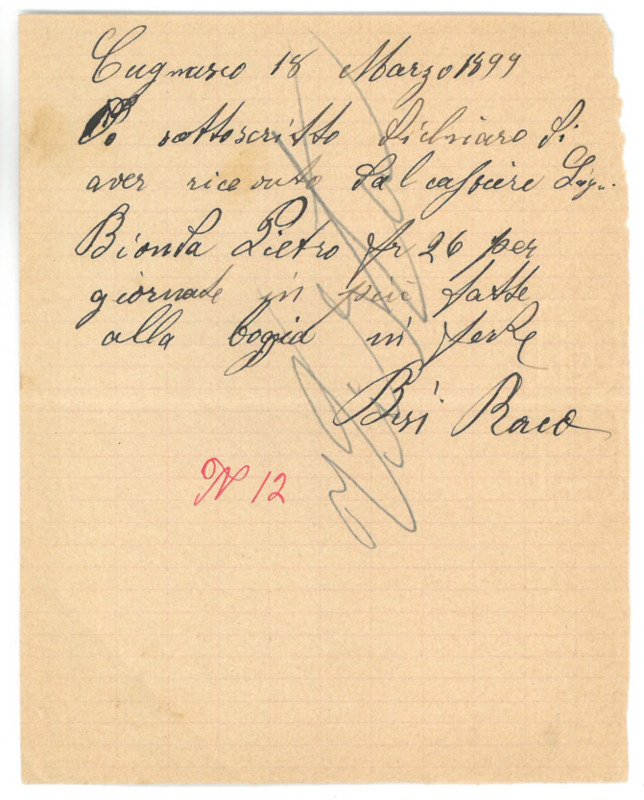 Cugnasco 18 Marzo 1899
Io sottoscritto dichiaro di
aver ricevuto dal cassiere Sig.
Bionda Pietro fr 26 per
giornate in più fatte
alla bogia in
Bisi
N 12